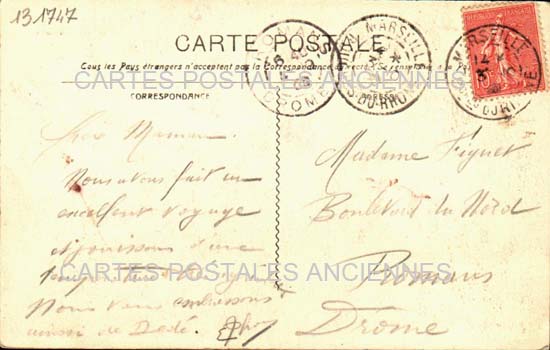 131747
CARTE POSTALE
Tous les Pays étrangers n'acceptent pas la Correspondance au recto, se renseigner à la Poste
CARTES POSTALES ANCIENNES
CORRESPONDANCE
MARSEILLE
B-DU-RHONE
DROME
MARSEILLE
10
Nous avons fait un
excellent voyage
et jouissons d'une
Nous vous embrassons
ainsi que Dédé.
Madame Figuet
Boulevard du Nord
Romans
Drôme
CARTES POSTALES ANCIENNES